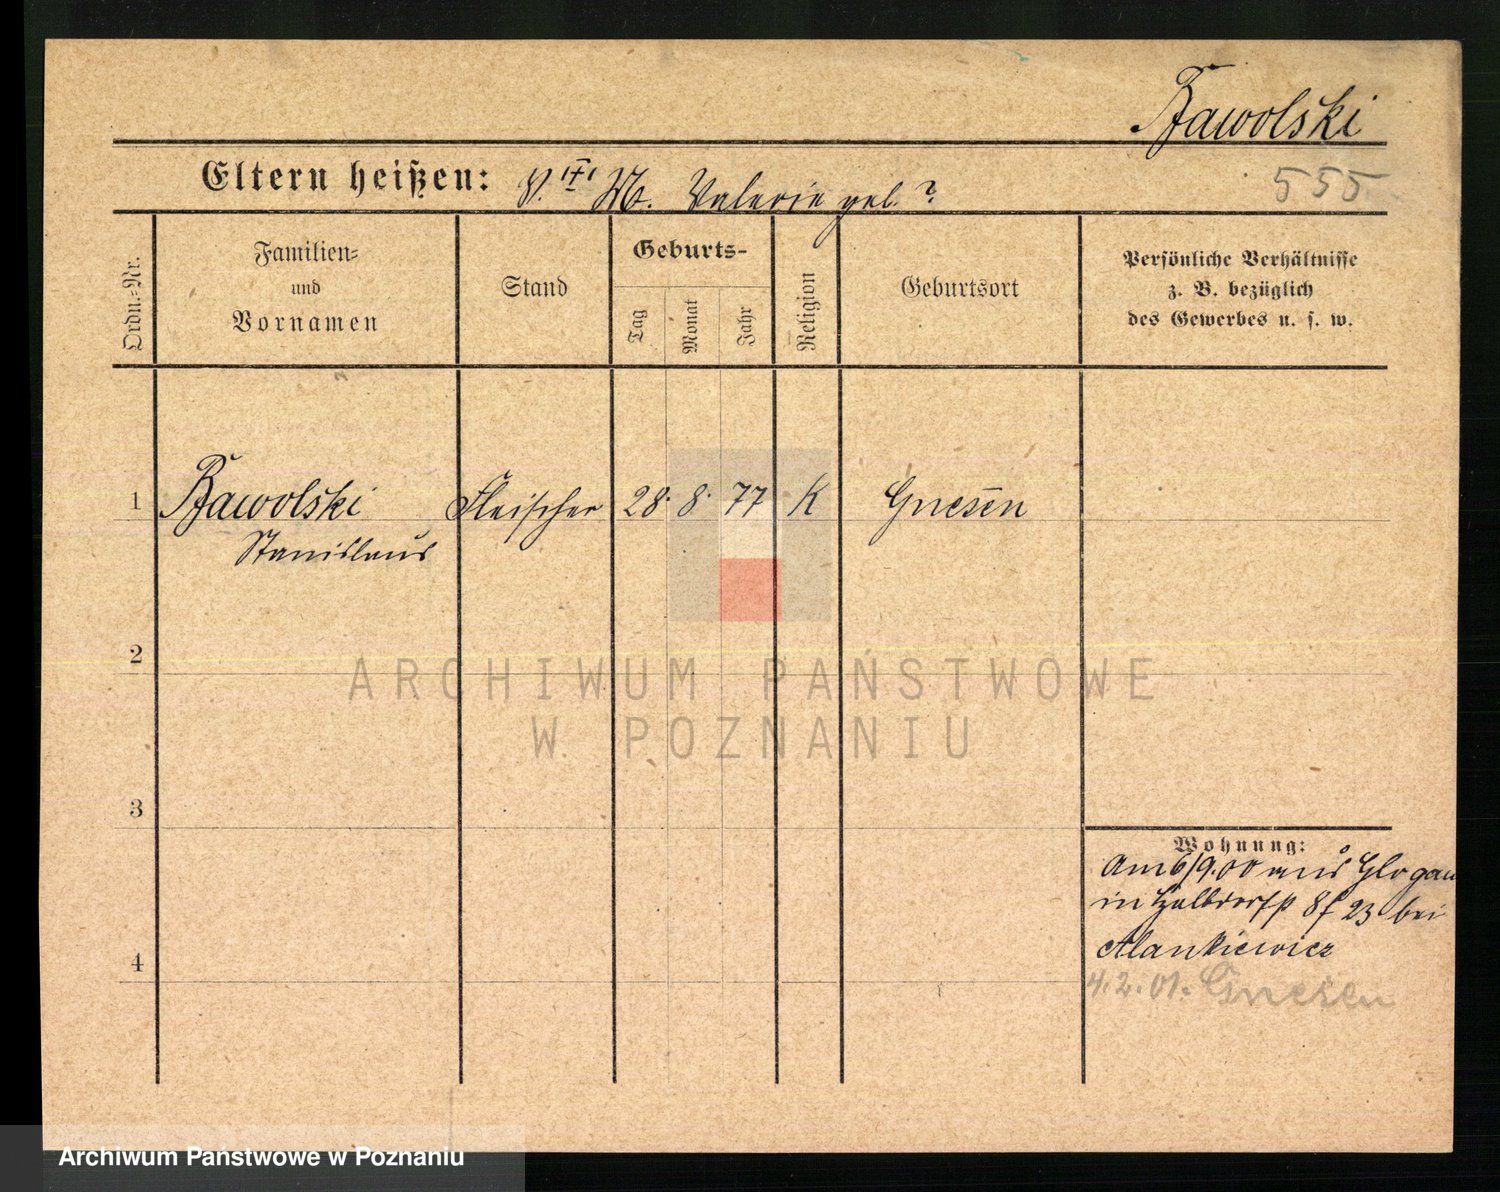 Bawolski
Eltern heißen: V. "†" M. Valerie geb. ?
555
Ordn.-Nr.
Familien-
und
Vornamen
Stand
Geburts-
Tag
Monat
Jahr
Religion
Geburtsort
Persönliche Verhältnisse
z. B. bezüglich
des Gewerbes u. s. w.
1 Bawolski Fleischer 28. 8. 77 K Gnesen
Stanislaus
2
3
4
Wohnung:
Am 6/9.00 aus Glogau
in Halbdorfstr 8f 23 bei
4.2.01. Gnesen
ARCHIWUM PAŃSTWOWE
W POZNANIU
Archiwum Państwowe w Poznaniu